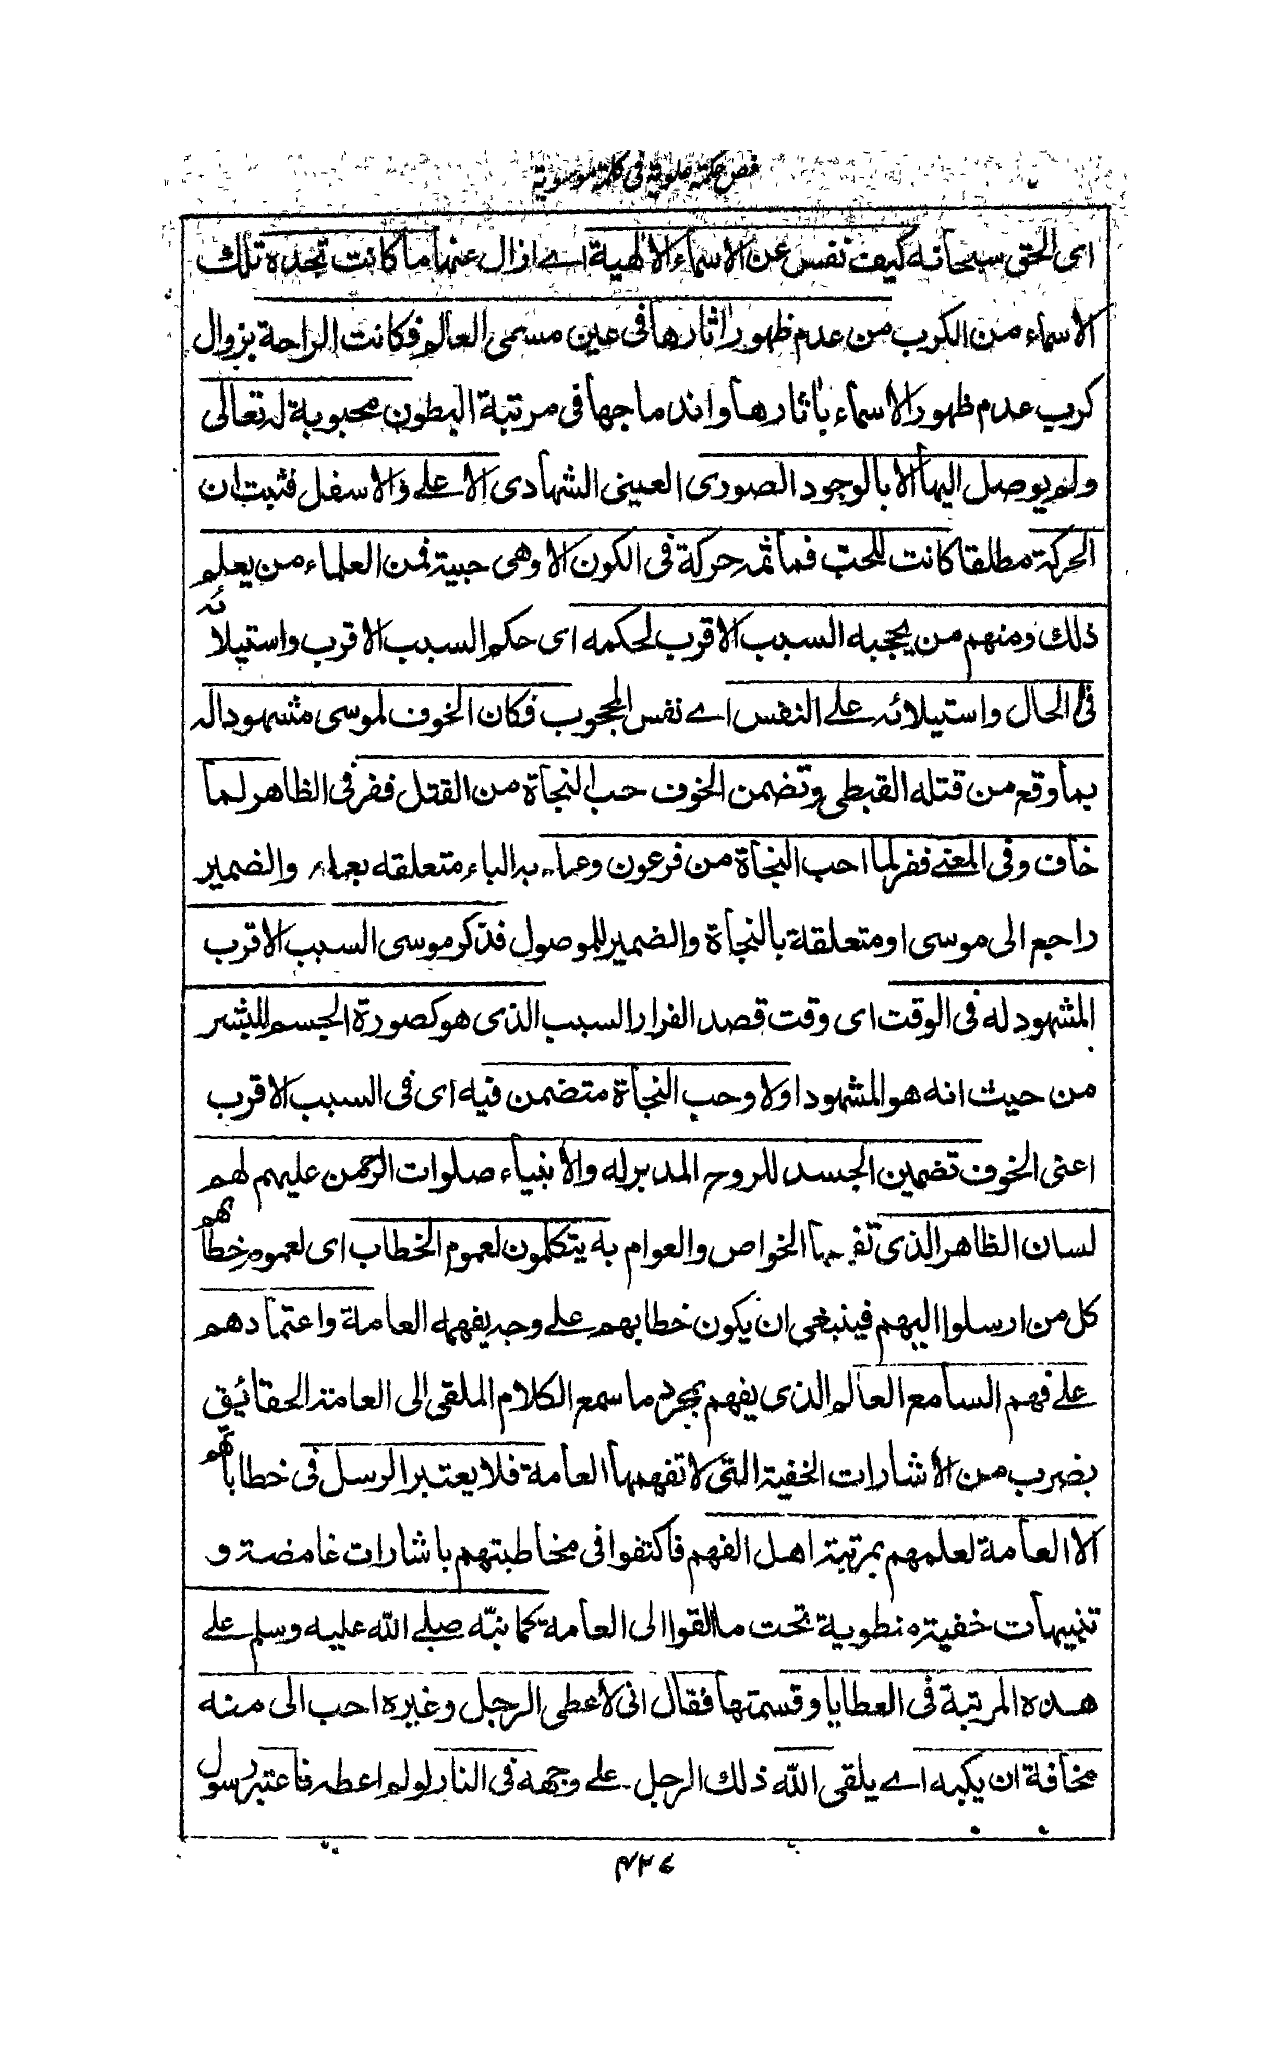 فص حكمة علوية في كلمة موسوية
اى الحق سبحانه كيف نفس عن الاسماء الالهية اے ازال عنها ما كانت تجده تلك
الاسماء من الكرب من عدم ظهور اثارها فى عين مسمى العالم فكانت الراحة بزوال
كرب عدم ظهور الاسماء باثارها واندماجها فى مرتبة البطون محبوبة له تعالى
ولم يوصل اليها الا بالوجود الصورى العينى الشهادى الاعلے والاسفل فثبت ان
الحركة مطلقا كانت للحب فما ثمه حركة فى الكون الا وهى حبية فمن العلماء من يعلم
ذلك ومنهم من يحجبه السبب الاقرب لحكمه اى حكم السبب الاقرب واستيلائه
فى الحال واستيلائه علے النفس اے نفس المحجوب فكان الخوف لموسى مشهودا له
بما وقع من قتله القبطى وتضمن الخوف حب النجاة من القتل ففر فى الظاهر لما
خاف وفى المعنے ففر لما احب النجاة من فرعون وعمله به الباء متعلقه بعمله والضمير
راجع الى موسى او متعلقة بالنجاة والضمير للموصول فذكر موسى السبب الاقرب
المشهود له فى الوقت اى وقت قصد الفرار السبب الذى هو كصورة الجسم للبشر
من حيث انه هو المشهود اولا وحب النجاة متضمن فيه اى فى السبب الاقرب
اعنى الخوف تضمين الجسد للروح المدبر له والانبياء صلوات الرحمن عليهم لهم
لسان الظاهر الذى تفهمها الخواص والعوام به يتكلمون لعموم الخطاب اى لعموم خطابهم
كل من ارسلوا اليهم فينبغى ان يكون خطابهم علے وجه يفهمه العامة واعتمادهم
علے فهم السامع العالم الذى يفهم بمجرد ما سمع الكلام الملقى الى العامة الحقائيق
بضرب من الاشارات الخفية التى لا تفهمها العامة فلا يعتبر الرسل فى خطاباتهم
الا العامة لعلمهم بمرتبة اهل الفهم فاكتفوا فى مخاطبتهم باشارات غامضة و
تنبيهات خفية منطوية تحت ما القوا الى العامة كما نبّه صلے الله عليه وسلم علے
هذه المرتبة فى العطايا وقسمتها فقال انى لاعطى الرجل وغيره احب الى منه
مخافة ان يكبه اے يلقى الله ذلك الرجل علے وجهه فى النار لو لم اعطه فاعتبر رسول